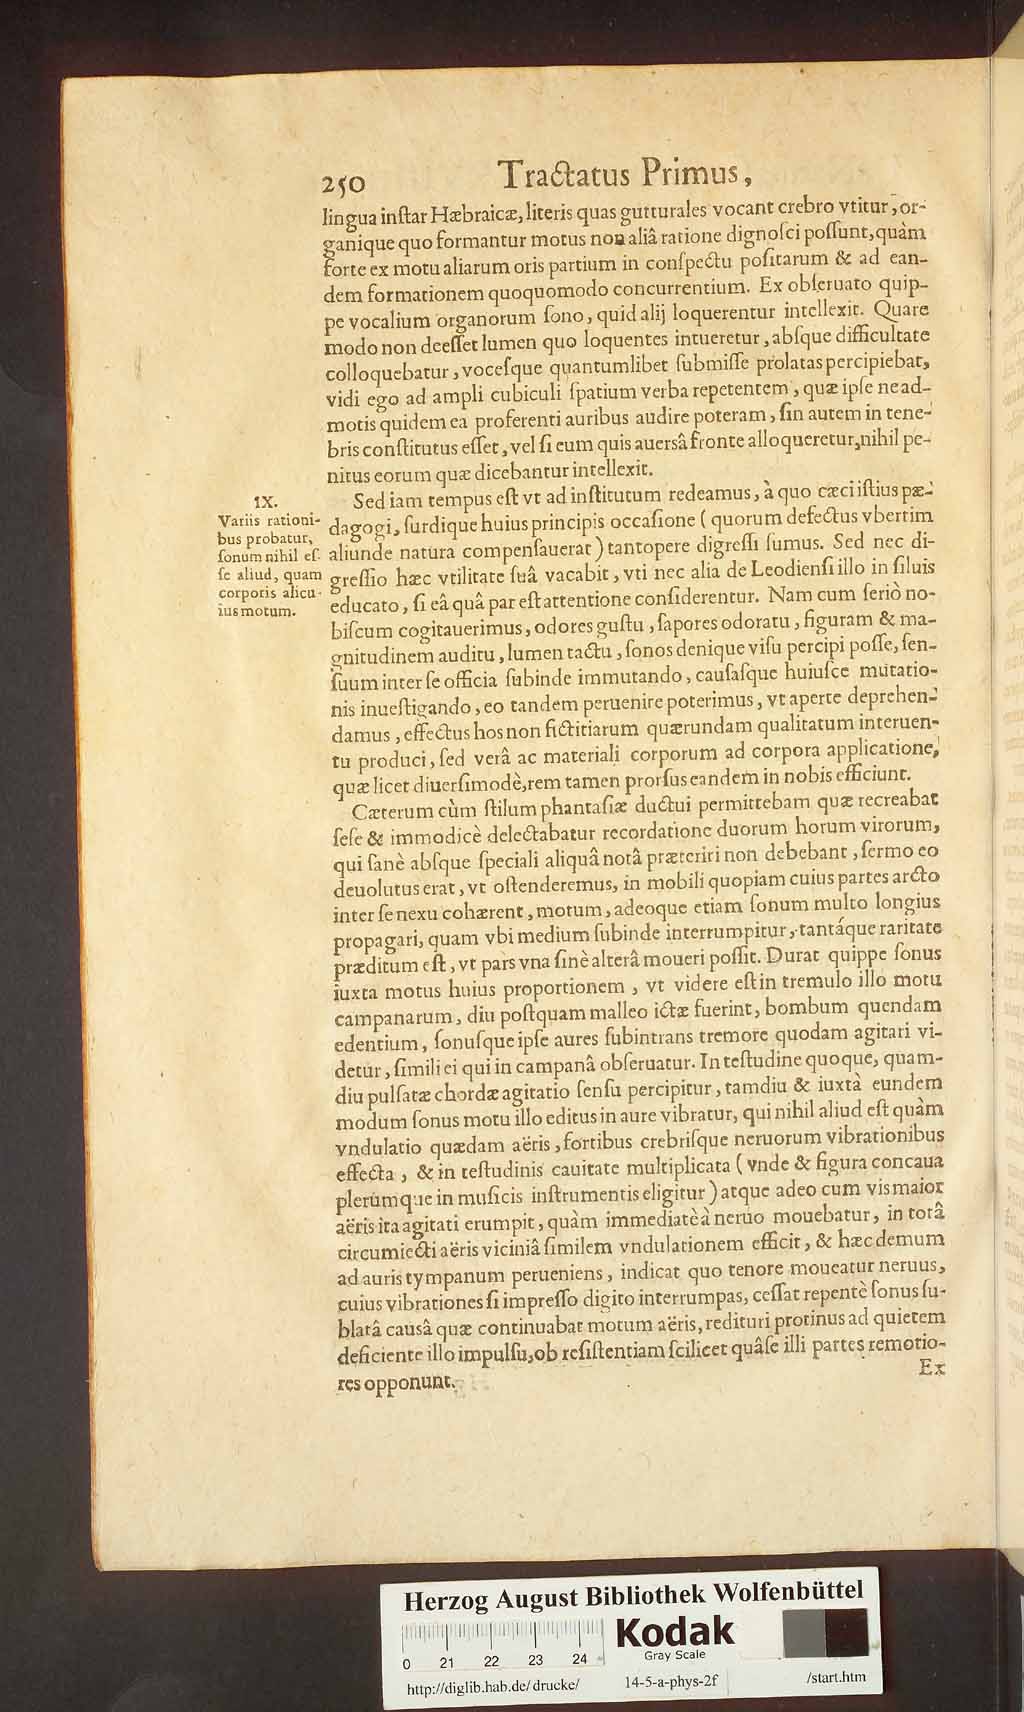 250
Tractatus Primus,
lingua inſtar Hæbraicæ, literis quas gutturales vocant crebro vtitur, or-
ganique quo formantur motus non aliâ ratione dignoſci poſſunt, quàm
forte ex motu aliarum oris partium in conſpectu poſitarum & ad ean-
dem formationem quoquomodo concurrentium. Ex obſeruato quip-
pe vocalium organorum ſono, quid alij loquerentur intellexit. Quare
modo non deeſſet lumen quo loquentes intueretur, abſque difficultate
colloquebatur, voceſque quantumlibet ſubmiſſe prolatas percipiebat,
vidi ego ad ampli cubiculi ſpatium verba repetentem, quæ ipſe ne ad-
motis quidem ea proferenti auribus audire poteram, ſin autem in tene-
bris conſtitutus eſſet, vel ſi eum quis auersâ fronte alloqueretur, nihil pe-
nitus eorum quæ dicebantur intellexit.
IX.
Variis rationi-
bus probatur,
ſonum nihil eſ-
ſe aliud, quam
corporis alicu-
ius motum.
Sed iam tempus eſt vt ad inſtitutum redeamus, à quo cæci iſtius pæ-
dagogi, ſurdique huius principis occaſione (quorum defectus vbertim
aliunde natura compenſauerat) tantopere digreſſi ſumus. Sed nec di-
greſſio hæc vtilitate ſuâ vacabit, vti nec alia de Leodienſi illo in ſiluis
educato, ſi eâ quâ par eſt attentione conſiderentur. Nam cum ſeriò no-
biſcum cogitauerimus, odores guſtu, ſapores odoratu, figuram & ma-
gnitudinem auditu, lumen tactu, ſonos denique viſu percipi poſſe, ſen-
ſuum inter ſe officia ſubinde immutando, cauſaſque huiuſce mutatio-
nis inueſtigando, eo tandem peruenire poterimus, vt aperte deprehen-
damus, effectus hos non fictitiarum quærundam qualitatum interuen-
tu produci, ſed verâ ac materiali corporum ad corpora applicatione,
quæ licet diuerſimodè, rem tamen prorſus eandem in nobis efficiunt.
Cæterum cùm ſtilum phantaſiæ ductui permittebam quæ recreabat
ſeſe & immodicè delectabatur recordatione duorum horum virorum,
qui ſanè abſque ſpeciali aliquâ notâ præteriri non debebant, ſermo eo
deuolutus erat, vt oſtenderemus, in mobili quopiam cuius partes arcto
inter ſe nexu cohærent, motum, adeoque etiam ſonum multo longius
propagari, quam vbi medium ſubinde interrumpitur, tantáque raritate
præditum eſt, vt pars vna ſinè alterâ moueri poſſit. Durat quippe ſonus
iuxta motus huius proportionem, vt videre eſt in tremulo illo motu
campanarum, diu poſtquam malleo ictæ fuerint, bombum quendam
edentium, ſonuſque ipſe aures ſubintrans tremore quodam agitari vi-
detur, ſimili ei qui in campanâ obſeruatur. In teſtudine quoque, quam-
diu pulſatæ chordæ agitatio ſenſu percipitur, tamdiu & iuxtà eundem
modum ſonus motu illo editus in aure vibratur, qui nihil aliud eſt quàm
vndulatio quædam aëris, fortibus crebriſque neruorum vibrationibus
effecta, & in teſtudinis cauitate multiplicata (vnde & figura concaua
plerumque in muſicis inſtrumentis eligitur) atque adeo cum vis maior
aëris ita agitati erumpit, quàm immediatè à neruo mouebatur, in totâ
circumiecti aëris viciniâ ſimilem vndulationem efficit, & hæc demum
ad auris tympanum perueniens, indicat quo tenore moueatur neruus,
cuius vibrationes ſi impreſſo digito interrumpas, ceſſat repentè ſonus ſu-
blatâ causâ quæ continuabat motum aëris, redituri protinus ad quietem
deficiente illo impulſu, ob reſiſtentiam ſcilicet quâ ſe illi partes remotio-
res opponunt.
Ex
Herzog August Bibliothek Wolfenbüttel
Kodak
Gray Scale
0 21 22 23 24
http://diglib.hab.de/drucke/ 14-5-a-phys-2f /start.htm